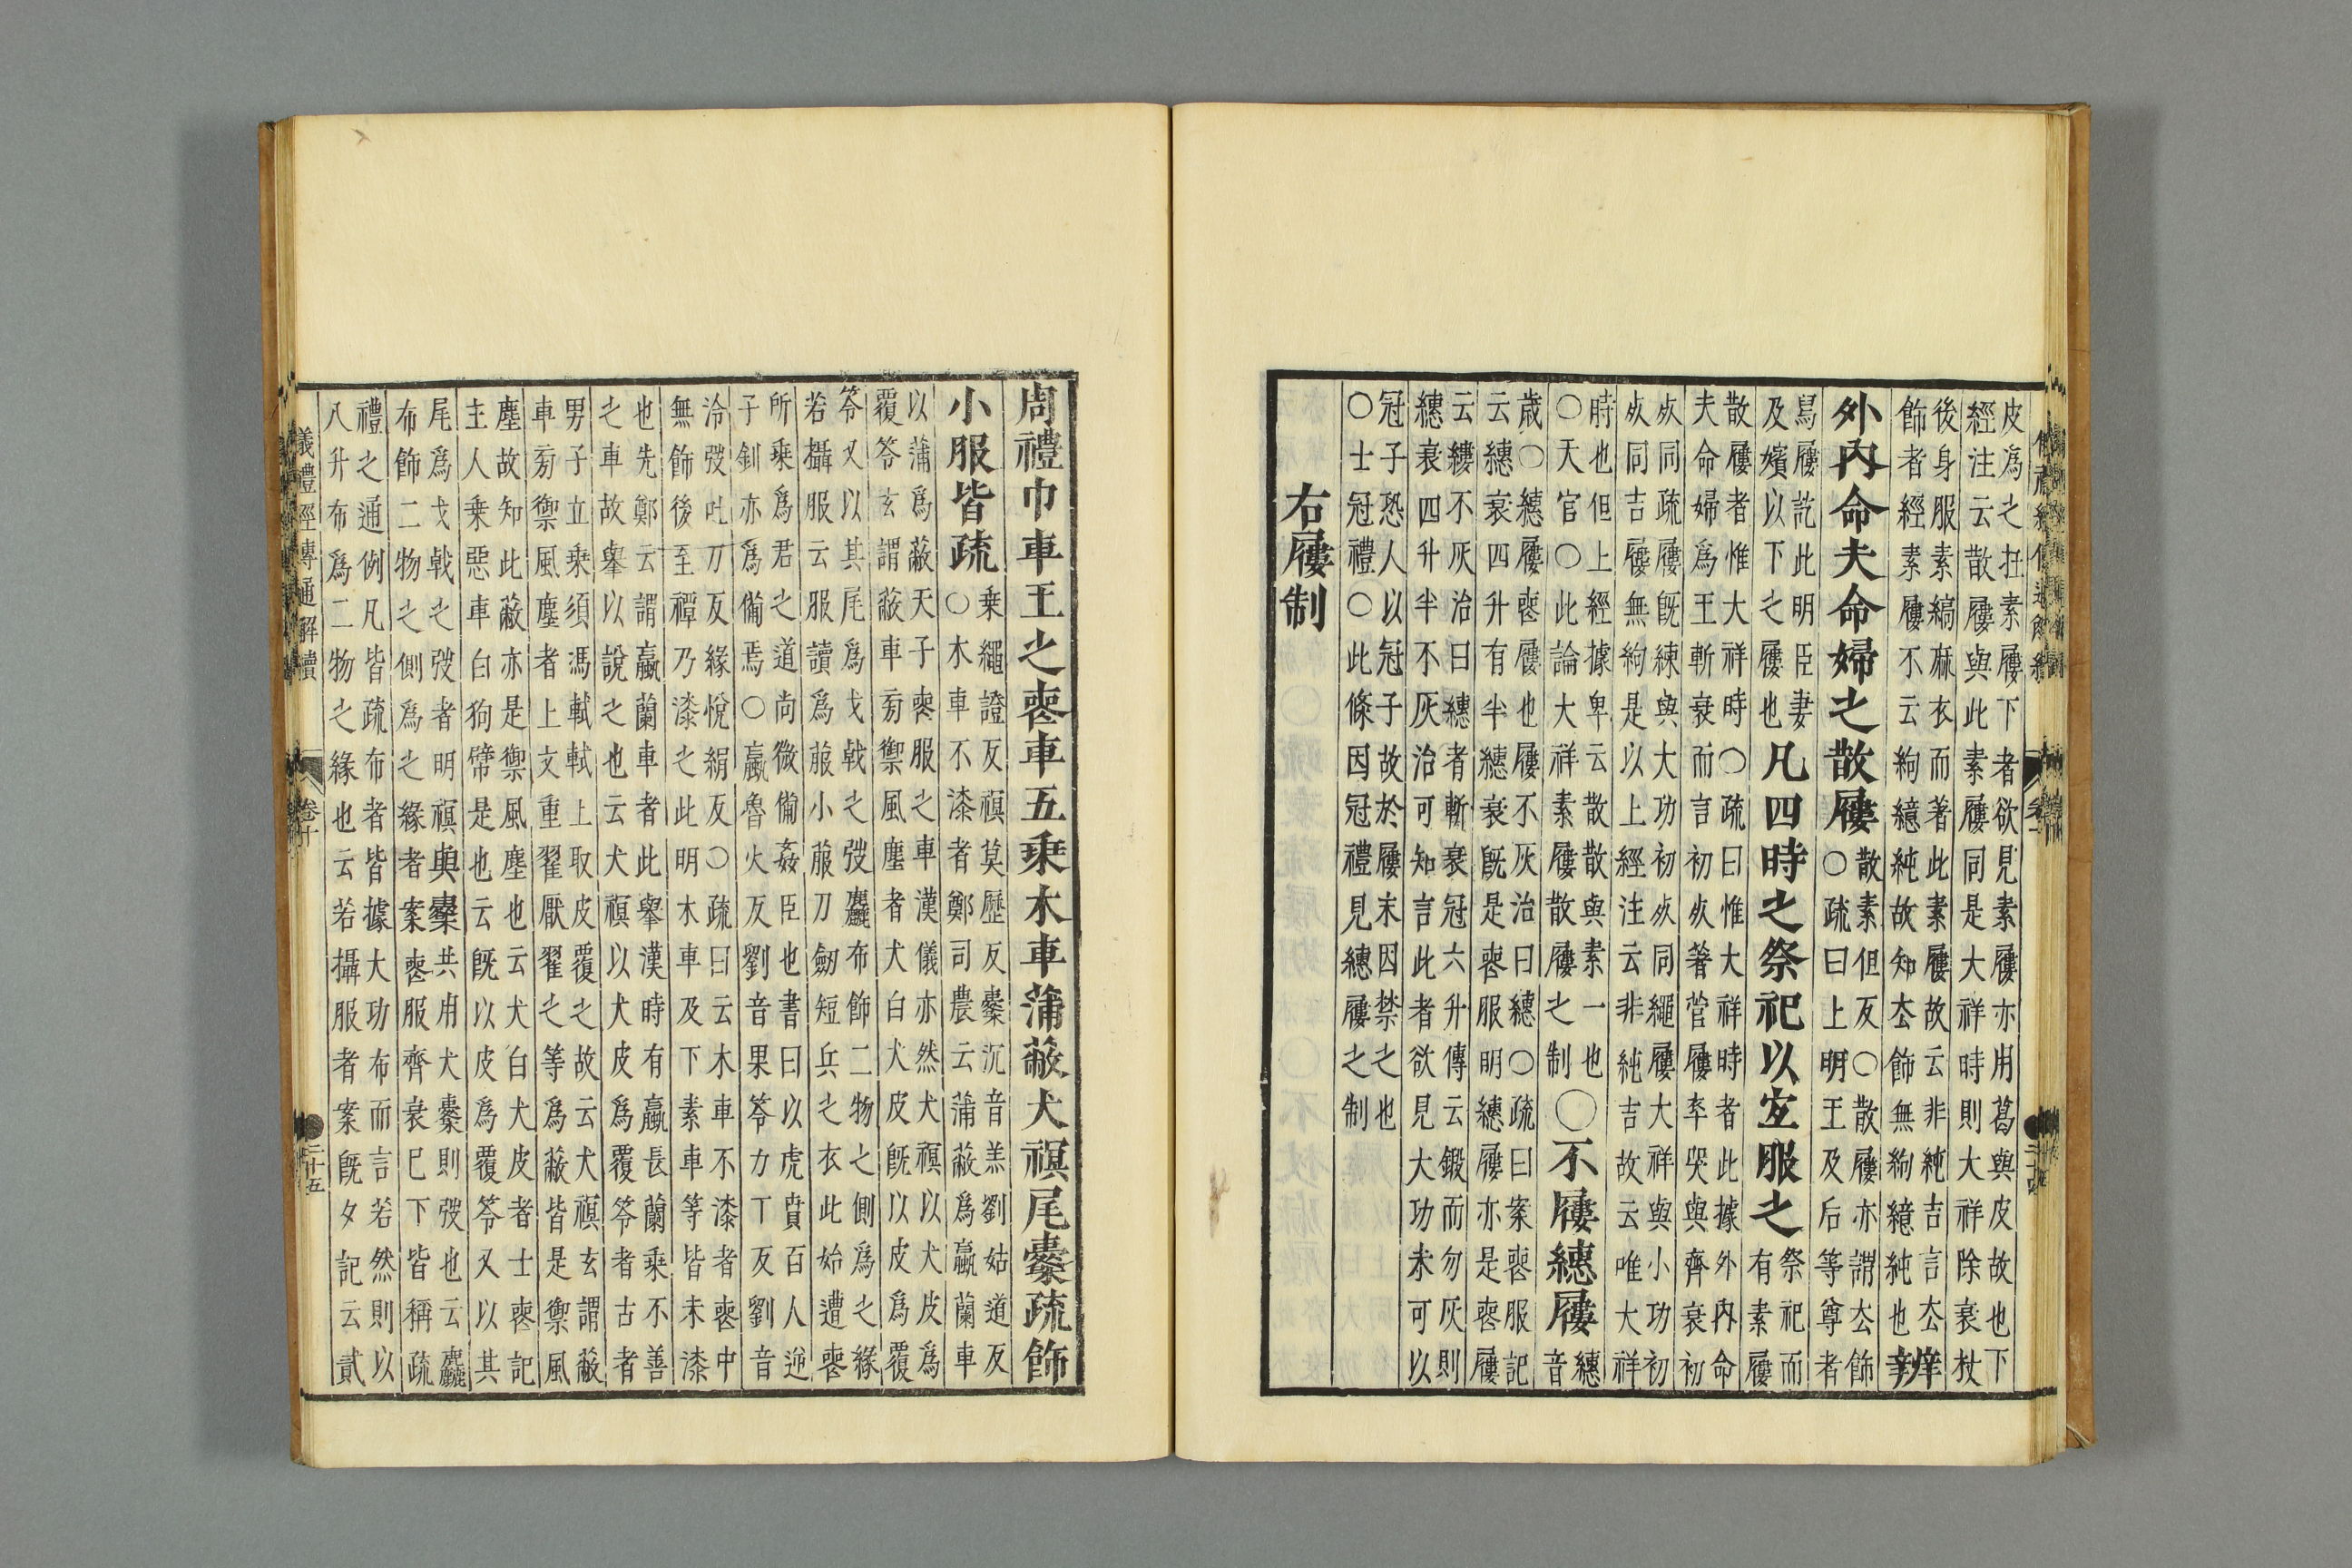 皮爲之在素屨下者欲見素屨亦用葛與皮故也下
經注云散屨與此素屨同是大祥時則大祥除衰杖
後身服素縞麻衣而著此素屨故云非純吉言去
飾者經素屨不云絇繶純故知去飾無絇繶純也辨
外內命夫命婦之散屨散素但反○散屨亦謂去飾
○疏曰上明王及后等尊者
舄屨訖此明臣妻
及嬪以下之屨也凡四時之祭祀以宜服之祭祀而
有素屨
散屨者惟大祥時○疏曰惟大祥時者此據外內命
夫命婦爲王斬衰而言初死著菅屨卒哭與齊衰初
死同疏屨既練與大功初死同繩屨大祥與小功初
死同吉屨無絇是以上經注云非純吉故云唯大祥
時也但上經據卑云散散與素一也
○天官○此論大祥素屨散屨之制○不屨繐屨繐
音
歲○繐屨喪屨也屨不灰治曰繐○疏曰案喪服記
云繐衰四升有半繐衰既是喪服明繐屨亦是喪屨
云縷不灰治曰繐者斬衰冠六升傳云鍛而勿灰則
繐衰四升半不灰治可知言此者欲見大功未可以
冠子恐人以冠子故於屨末因禁之也
○士冠禮○此條因冠禮見繐屨之制
右屨制
周禮巾車王之喪車五乘木車蒲蔽犬䙪尾櫜疏飾
小服皆疏乗繩證反䙪莫歷反櫜沉音羔劉姑道反
○木車不漆者鄭司農云蒲蔽爲蠃蘭車
以蒲爲蔽天子喪服之車漢儀亦然犬䙪以犬皮爲
覆笭玄謂蔽車旁禦風塵者犬白犬皮既以皮爲覆
笭又以其尾爲戈戟之弢麤布飾二物之側爲之緣
若攝服云服讀爲菔小菔刀劒短兵之衣此始遭喪
所乗爲君之道尚微備姦臣也書曰以虎賁百人逆
子釗亦爲備焉○蠃魯火反劉音果笭力丁反劉音
泠弢吐刀反緣悅絹反○疏曰云木車不漆者喪中
無飾後至禫乃漆之此明木車及下素車等皆未漆
也先鄭云謂蠃蘭車者此舉漢時有蠃長蘭乗不善
之車故舉以說之也云犬䙪以犬皮爲覆笭者古者
男子立乗須馮軾軾上取皮覆之故云犬䙪玄謂蔽
車旁禦風塵者上文重翟厭翟之等爲蔽皆是禦風
塵故知此蔽亦是禦風塵也云犬白犬皮者士喪記
主人乗惡車白狗幦是也云既以皮爲覆笭又以其
尾爲戈戟之弢者明䙪與櫜共用犬櫜則弢也云麤
布飾二物之側爲之緣者案喪服齊衰已下皆稱疏
禮之通例凡皆疏布者皆據大功布而言若然則以
八升布爲二物之緣也云若攝服者案既夕記云貳
儀禮經傳通解續
卷十
二十五